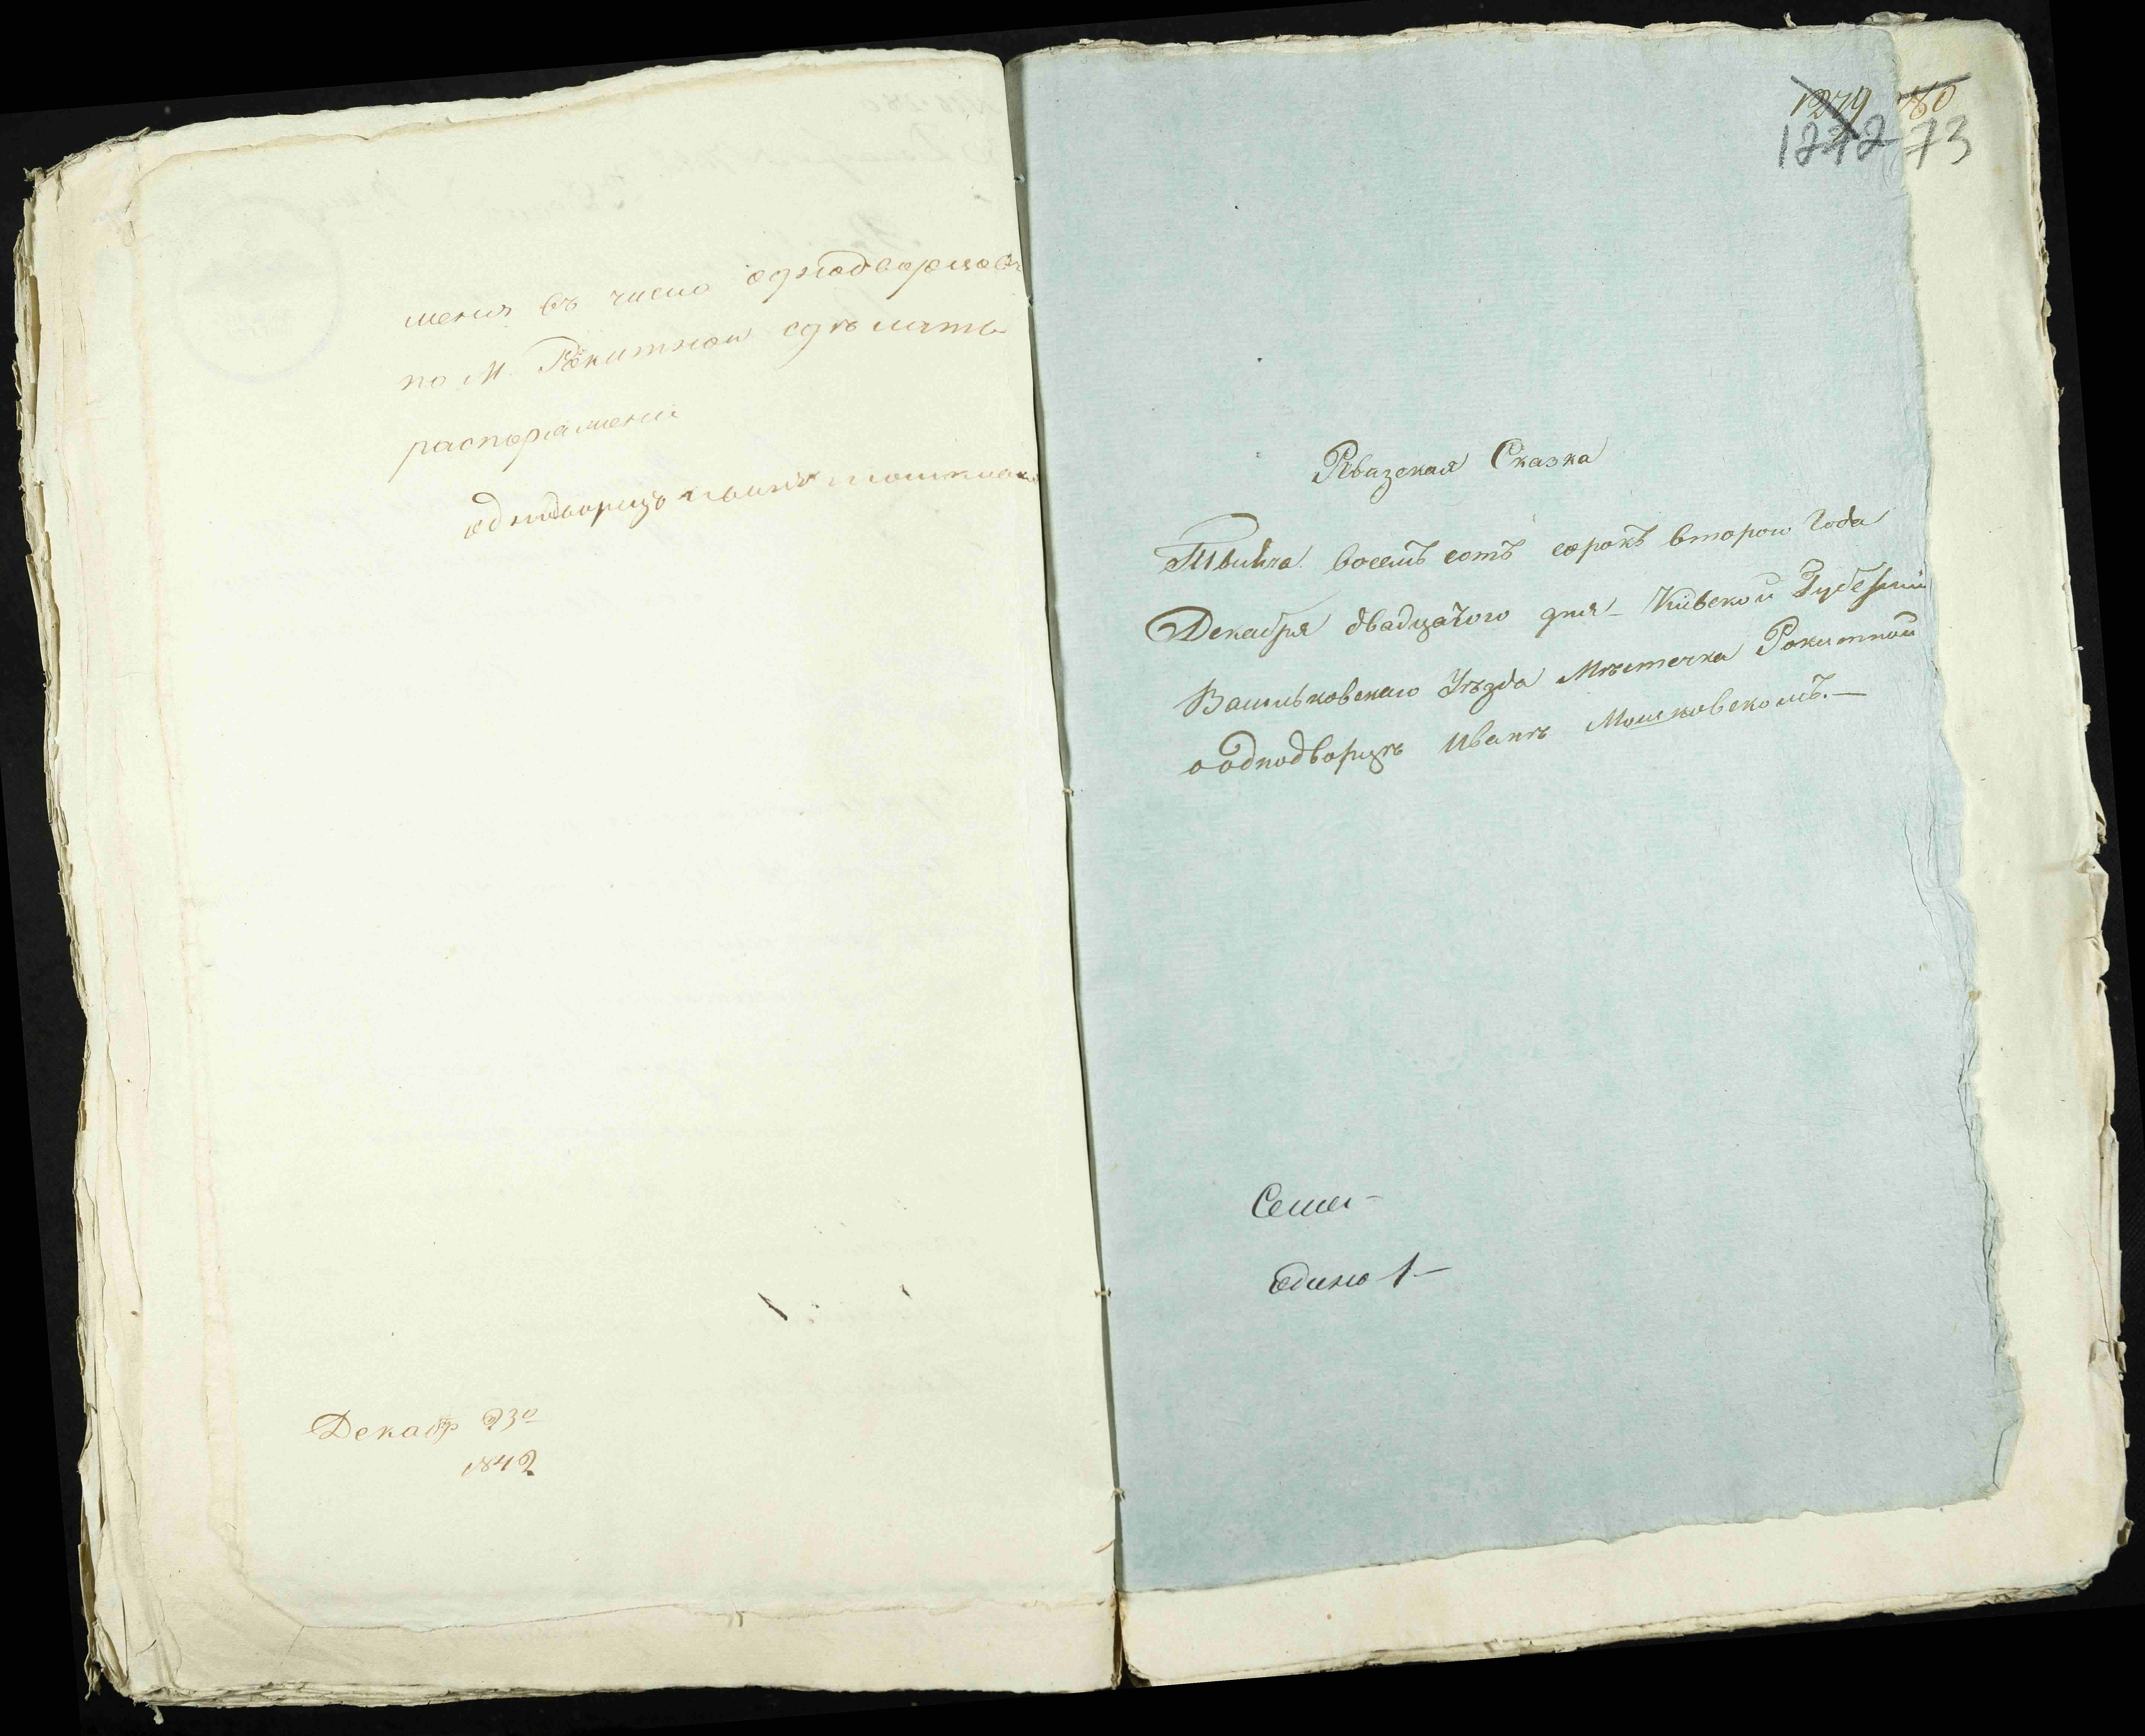 меня въ число однодворцовъ
по М. Рокитной сдѣлать
распоряжение
однодворецъ иванъ мошковск
Декабр 23о
1842
1279 80
1272 73
Ревизская Сказка
Тысяча восемъ сотъ сорокъ второго Года
Декабря двадцатого дня Кіевской Губерніи
Васильковскаго Уѣзда Мѣстечка Рокитной
о однодворцѣ Иванѣ Мошковскомъ.—
Семей
едино 1—